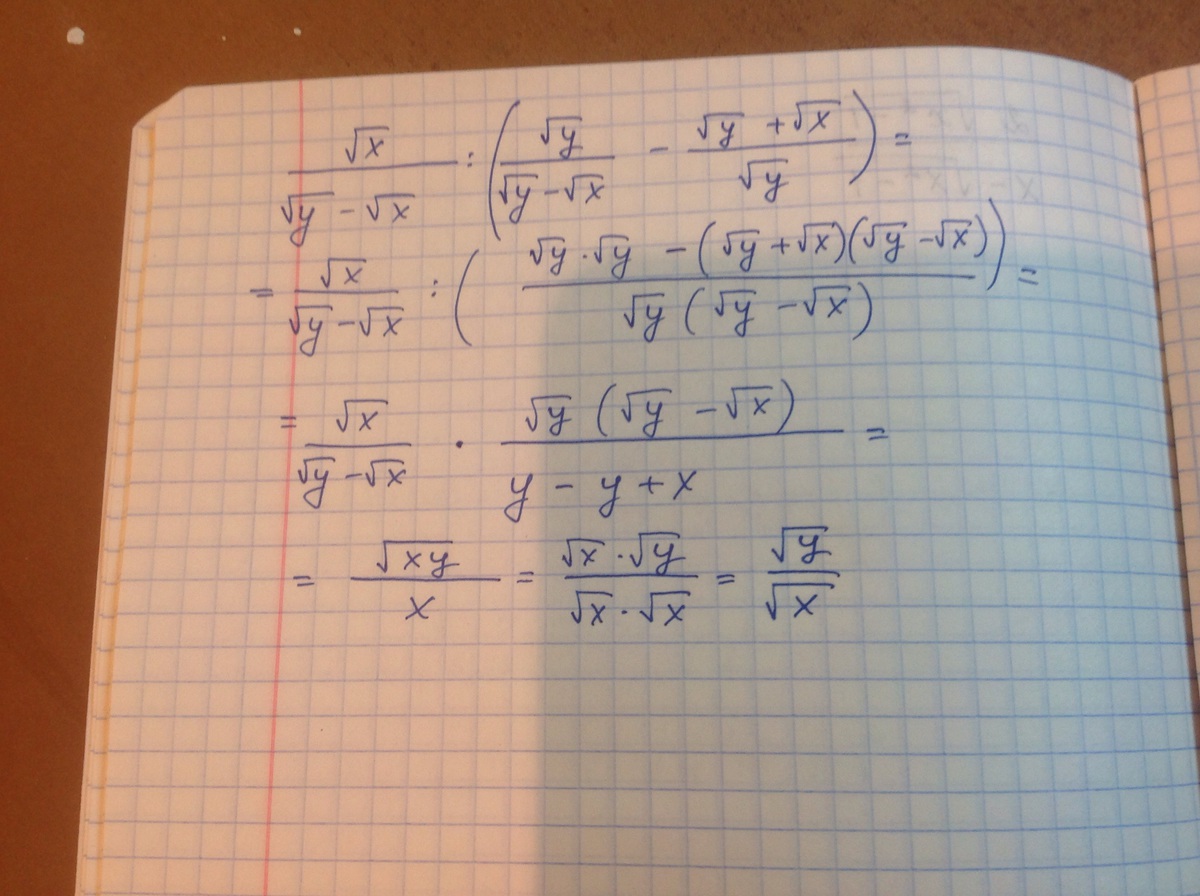 √x / (√y − √x) : (√y / (√y − √x) − (√y + √x) / √y) =
= √x / (√y − √x) : ((√y · √y − (√y + √x)(√y − √x)) / (√y (√y − √x))) =
= √x / (√y − √x) · √y (√y − √x) / (y − y + x) =
= √xy / x = (√x · √y) / (√x · √x) = √y / √x